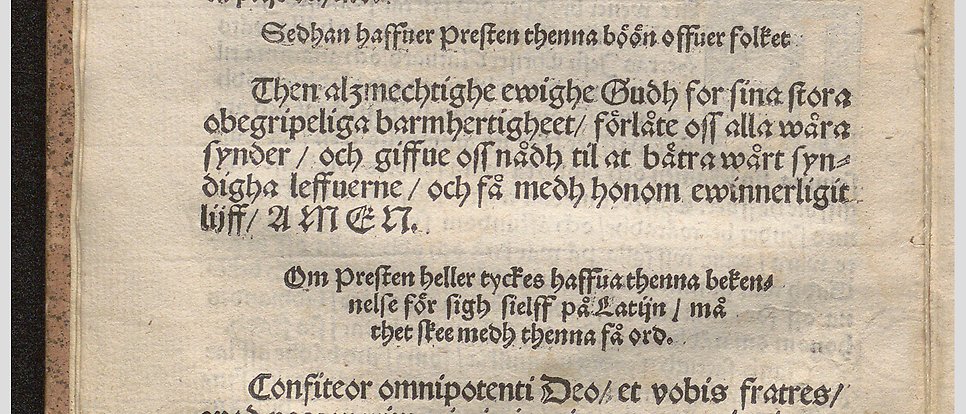 Sedhan haffuer Presten thenna böön offuer folket
Then alzmechtighe ewighe Gudh for sina stora
obegripeliga barmhertigheet / förlåte oss alla wåra
synder / och giffue oss nådh til at bätra wårt syn⸗
digha leffuerne / och få medh honom ewinnerligit
lijff / AMEN.
Om Presten heller tyckes haffua thenna beken⸗
nelse för sigh sielff på Latijn / må
thet skee medh thenna få ord.
Confiteor omnipotenti Deo / et vobis fratres /